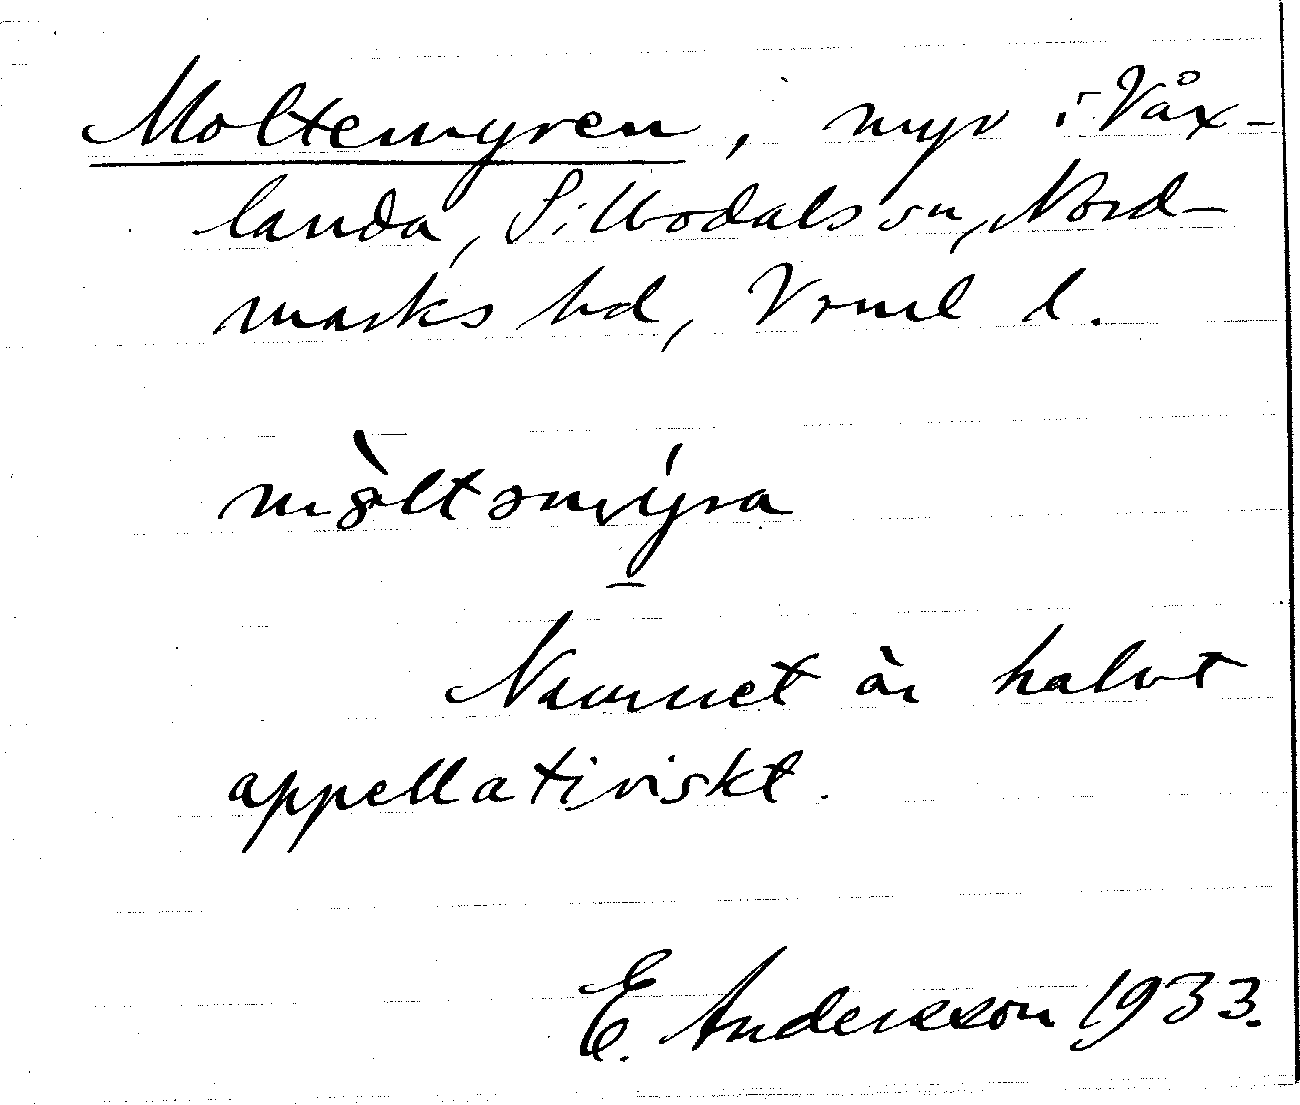 Moltemyren, myr i Våx-
landa, Sillbodals sn, Nord-
marks hd, Vrml l.
mò᷎ltəmy̌ra
Namnet är halvt
appellativiskt.
E. Andersson 1933.